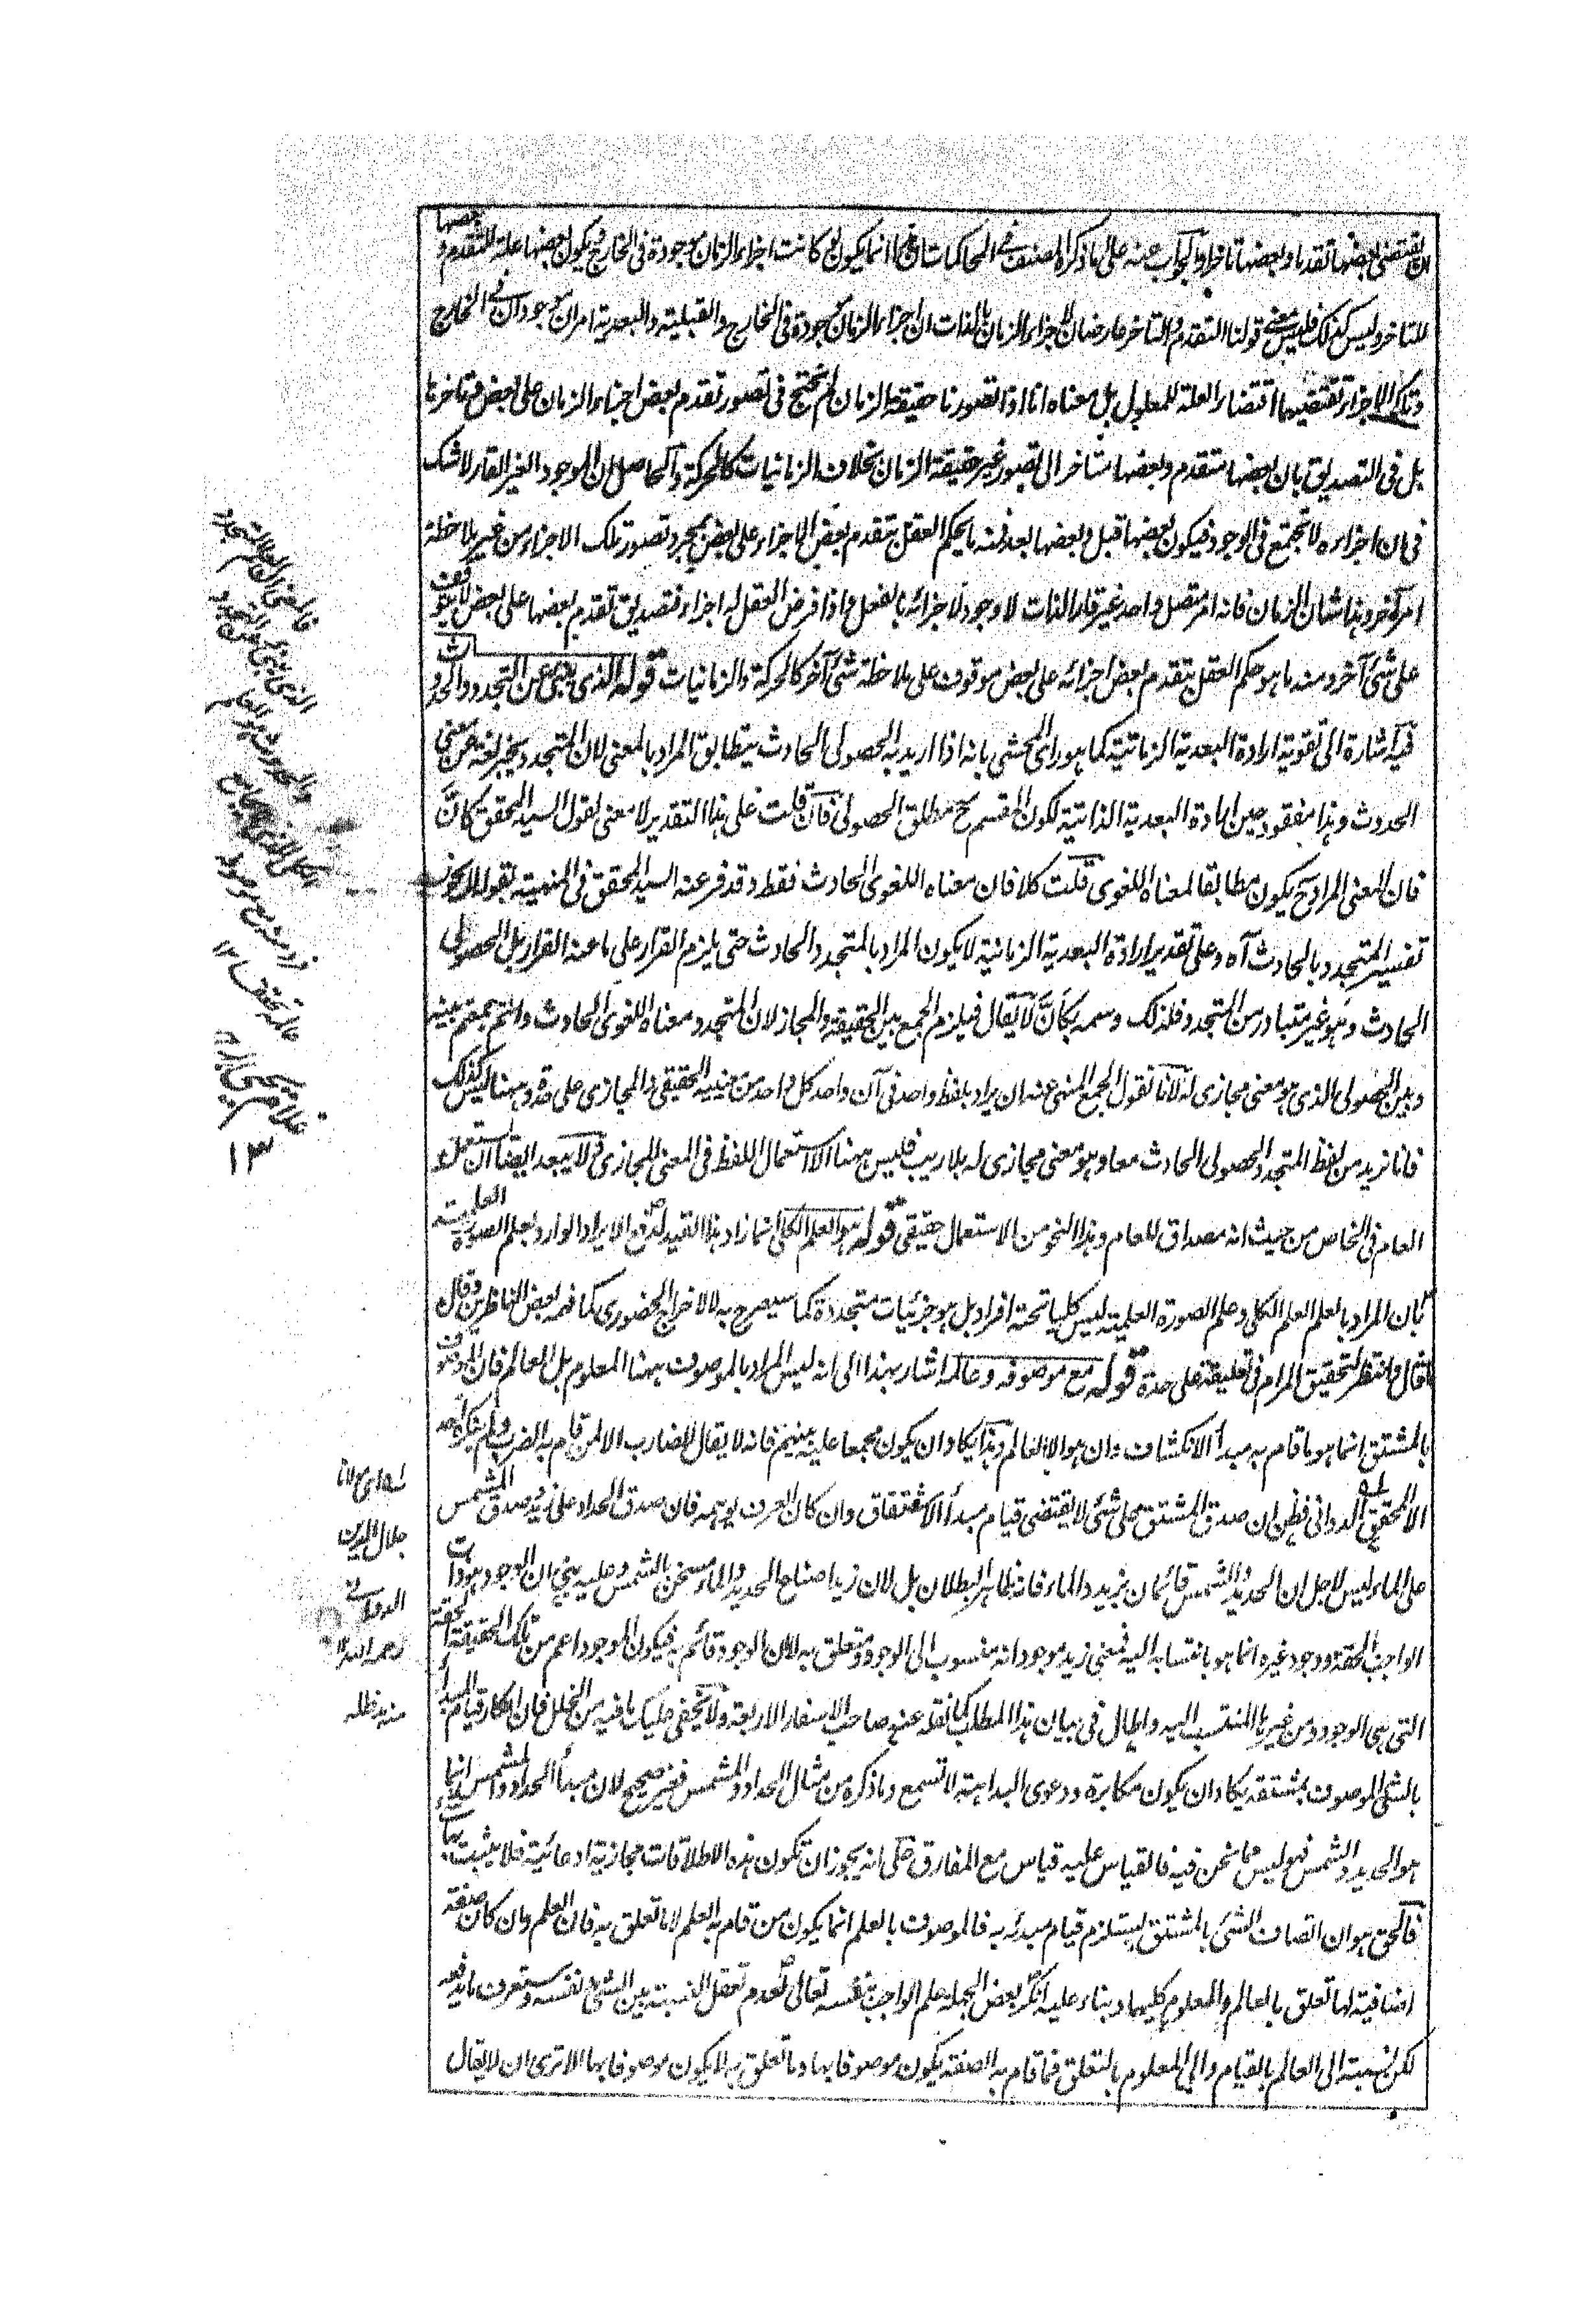 ان يقتضى بعضها تقدما وبعضها تاخرا والجواب عنه على ما ذكره المصنف فى المحاكمات ان هذا انما يكون لو كانت اجزاء الزمان موجودة فى الخارج ويكون بعضها علة للتقدم وبعضها
للتاخر وليس كذلك فليس معنى قولنا التقدم والتاخر عارضان لاجزاء الزمان بالذات ان اجزاء الزمان موجودة فى الخارج والقبلية والبعدية امران موجودان فى الخارج
وتلك الاجزاء تقتضيهما اقتضاء العلة للمعلول بل معناه انا اذا تصورنا حقيقة الزمان لم نحتج فى تصور تقدم بعض اجزاء الزمان على بعض وتاخرها
بل فى التصديق بان بعضها متقدم وبعضها متاخر الى تصور غير حقيقة الزمان بخلاف الزمانيات كالحركة والحاصل ان الموجود الغير القار لا شك
فى ان اجزاءه لا تجتمع فى الوجود فيكون بعضها قبل وبعضها بعد فمنه ما يحكم العقل بتقدم بعض الاجزاء على بعض بمجرد تصور تلك الاجزاء من غير ملاحظة
امر آخر وهذا شان الزمان فانه امر متصل واحد غير قار الذات لا وجود لاجزائه بالفعل واذا فرض العقل له اجزاء فتصديق تقدم بعضها على بعض لا يتوقف
على شئ آخر ومنه ما هو حكم العقل بتقدم بعض اجزائه على بعض موقوف على ملاحظة شئ آخر كالحركة والزمانيات قوله الذى ينبئ عن التجدد والحدوث
فيه اشارة الى تقوية ارادة البعدية الزمانية كما هو راى المحشى بانه اذا اريد به الحصولى الحادث يتطابق المراد بالمعنى لان المتجدد يخبر لغة عن معنى
الحدوث وهذا مفقود حين ارادة البعدية الذاتية لكون المقسم ح مطلق الحصولى فان قلت على هذا التقدير لا معنى لقول السيد المحقق كانَّ
فان المعنى المراد ح يكون مطابقا لمعناه اللغوى قلت كلا فان معناه اللغوى الحادث فقط وقد فر عنه السيد المحقق فى المنهية بقوله لا يجوز
تفسير المتجدد بالحادث آه وعلى تقدير ارادة البعدية الزمانية لا يكون المراد بالمتجدد الحادث حتى يلزم القرار على ما عنه الفرار بل الحصولى
الحادث وهو غير متبادر من المتجدد فلذلك وسمه بكأنَّ لا يقال فيلزم الجمع بين الحقيقة والمجاز لان المتجدد معناه اللغوى الحادث وانتم جمعتم بينه
وبين الحصولى الذى هو معنى مجازى له لانا نقول الجمع المنهى عنه ان يراد بلفظ واحد فى آن واحد كل واحد من معنييه الحقيقى والمجازى على حدة وههنا ليس كذلك
فانا نريد من لفظ المتجدد الحصولى الحادث معا وهو معنى مجازى له بلا ريب فليس ههنا الا استعمال اللفظ فى المعنى المجازى ولا يبعد ايضا ان يستعمل
العام فى الخاص من حيث انه مصداق للعام وهذا النحو من الاستعمال حقيقى قوله هو العلم الكلى انما زاد هذا القيد لدفع الايراد الوارد بعلم الصورة العلمية
بان المراد بالعلم العلم الكلى وعلم الصورة العلمية ليس كليا تحته افراد بل هو جزئيات متجددة كما سيصرح به لا لاخراج الحضورى كما فهمه بعض الناظرين وقال
ما قال وانتظر لتحقيق المرام فى تعليقة على حدة قوله مع موصوفه وعالمه اشار بهذا الى انه ليس المراد بالموصوف ههنا المعلوم بل العالم فان الموصوف
بالمشتق انما هو ما قام به مبدأ الانكشاف وان هو الا العالم وهذا يكاد ان يكون مجمعا عليه بينهم فانه لا يقال الضارب الا لمن قام به الضرب ولم ينكره احد
الا المحقق الدوانى فظن ان صدق المشتق على شئ لا يقتضى قيام مبدأ الاشتقاق وان كان العرف يوهمه فان صدق الحداد على زيد وصدق المشمس
على الماء ليس لاجل ان الحديد والشمس قائمان بزيد والماء فانه ظاهر البطلان بل لان زيدا صناع الحديد والماء مسخن بالشمس وعليه يبنى ان الوجود هو ذات
الواجب الحقة ووجود غيره انما هو بانتسابه اليه فمعنى زيد موجود انه منسوب الى الوجود ومتعلق به لا ان الوجود قائم به فيكون الموجود اعم من تلك الحقيقة الحقة
التى هى الوجود ومن غيرها المنتسب اليه واطال فى بيان هذا المطلب كما نقله عنه صاحب الاسفار الاربعة ولا يخفى عليك ما فيه من الخلل فان انكار قيام المبدأ
بالشئ الموصوف بمشتقه يكاد ان يكون مكابرة ودعوى البداهة لا تسمع وما ذكره من مثال الحداد والمشمس فغير صحيح لان مبدأ الحداد والمشمس انما
هو الحديد والشمس فهو ليس مما نحن فيه فالقياس عليه قياس مع الفارق على انه يجوز ان تكون هذه الاطلاقات مجازية ادعائية فلا يثبت بها
فالحق هو ان اتصاف الشئ بالمشتق يستلزم قيام مبدئه به فالموصوف بالعلم انما يكون من قام به العلم لا ما تعلق به فان العلم وان كان صفة
اضافية لها تعلق بالعالم والمعلوم كليهما وبناء عليه انكر بعض الجهلة علم الواجب بنفسه تعالى لعدم تعقل النسبة بين الشئ ونفسه وستعرف ما يدفعه
لكن نسبته الى العالم بالقيام والى المعلوم بالتعلق فما قام به الصفة يكون موصوفا بها وما تعلق به لا يكون موصوفا بها الا ترى ان لا يقال
غلام يحيى
١٣
اى مولانا
جلال الدين
الدوانى
رحمه الله ١٢
منه مد ظله